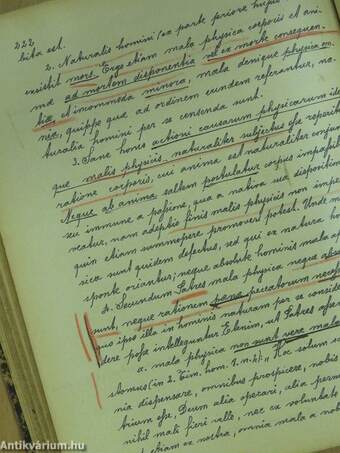 222
bita est.
2. Naturalis homini (ex parte priore hujus
existit mors. Ergo etiam mala physica corporis et ani-
ma ad mortem disponentia vel ex morte consequen-
tia, et incommoda minora, mala denique physica om-
nia, quippe quae ad ordinem eundem referantur, na-
turalia homini per se censenda sunt.
3. Sane homo actioni causarum physicarum ide-
que malis physicis naturaliter subjectus est
ratione corporis, cui anima est naturaliter conjun
Neque ab anima saltem postulatur corpus impassibi
seu immune a passione, qua a nativa dispositio
vocatur, nam adeptio finis malis physicis non impe-
quin etiam summopere promoveri potest. Unde m
sica sunt quidem defectus, sed qui ex natura ho
sponte oriantur; neque absolute hominis mala ap
4. Secundum Patres mala physica neque abs
sunt, neque rationem poena peccatorum neces
quo ipso illa in hominis naturam per se conside
dere posse intelleguntur. Etenim, ut Patres
a. mala physica non sunt vere mala
stomus (in 2. Tim. hom. 1. n. 4). "Hoc solum s
nia dispensare, omnibus prospicere, nobis
trium esse, Deum alia operari, alia perm
nihil mali fieri velle, nec ex voluntate
etiam ex nostra, omnia mala a nob
Antikvárium.hu